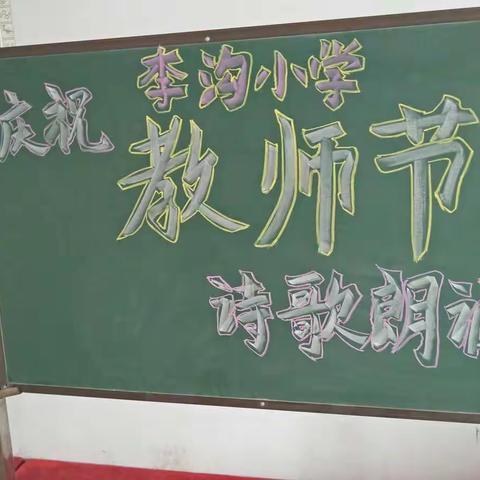 李沟小学
庆祝
教师节
诗歌朗诵